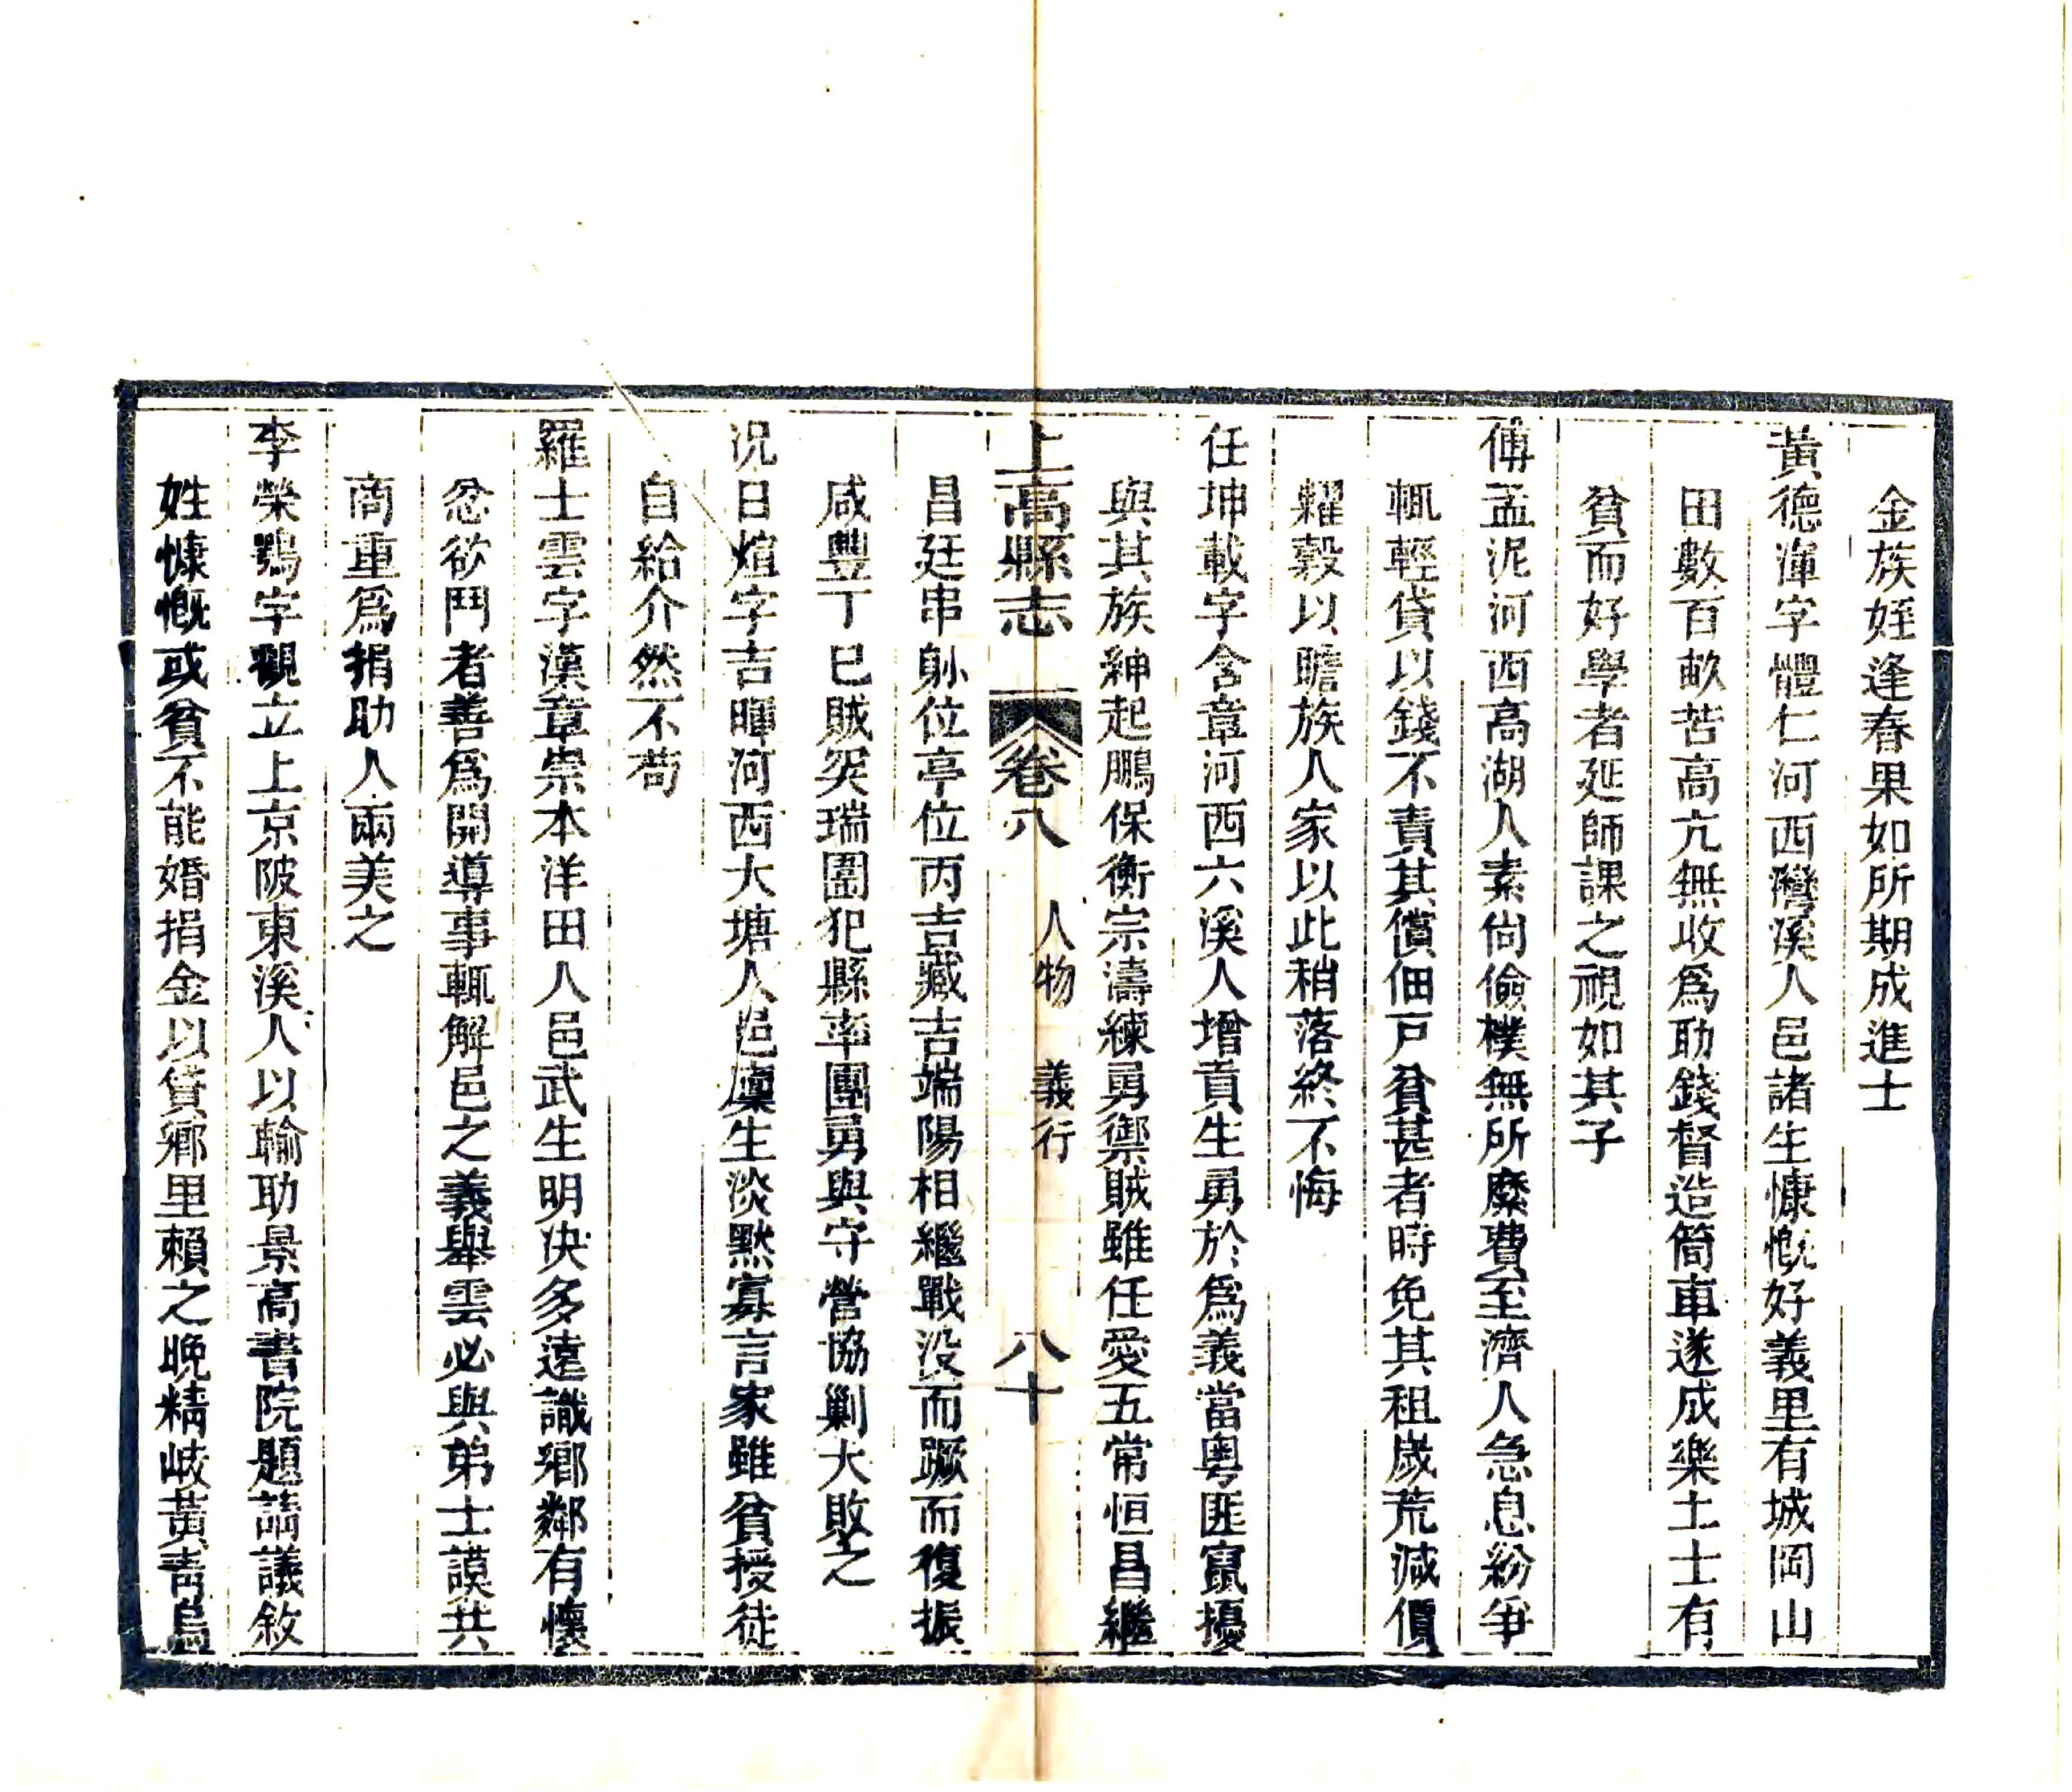 金族姪逢春果如所期成進士
黃德渾字體仁河西灣溪人邑諸生慷慨好義里有城岡山
田數百畝苦高亢無收爲助錢督造筒車遂成樂土士有
貧而好學者延師課之視如其子
傅孟泥河西高湖人素尚儉樸無所糜費至濟人急息紛爭
輒輕貸以錢不責其償佃戸貧甚者時免其租歲荒減價
糶穀以贍族人家以此稍落終不悔
任坤載字含章河西六溪人增貢生勇於爲義當粤匪竄擾
與其族紳起鵬保衡宗濤練勇禦賊雖任愛五常恒昌繼
上高縣志 卷八 人物 義行 八十
昌廷串躲位亭位丙吉臧吉端陽相繼戰没而蹶而復振
咸豐丁巳賊突瑞圍犯縣率團勇與守營協剿大敗之
況日煊字吉暉河西大塘人邑廩生淡默寡言家雖貧授徒
自給介然不苟
羅士雲字漢章崇本洋田人邑武生明決多遠識鄉鄰有懷
忿欲鬥者善爲開導事輒解邑之義舉雲必與弟士謨共
商重爲捐助人兩美之
李榮鶚字觀立上京陂東溪人以輸助景高書院題請議敘
姓慷慨或貧不能婚捐金以貸鄉里賴之晚精岐黃靑烏